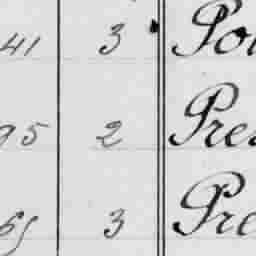 41 3 Po
95 2 Pre
65 3 Pre